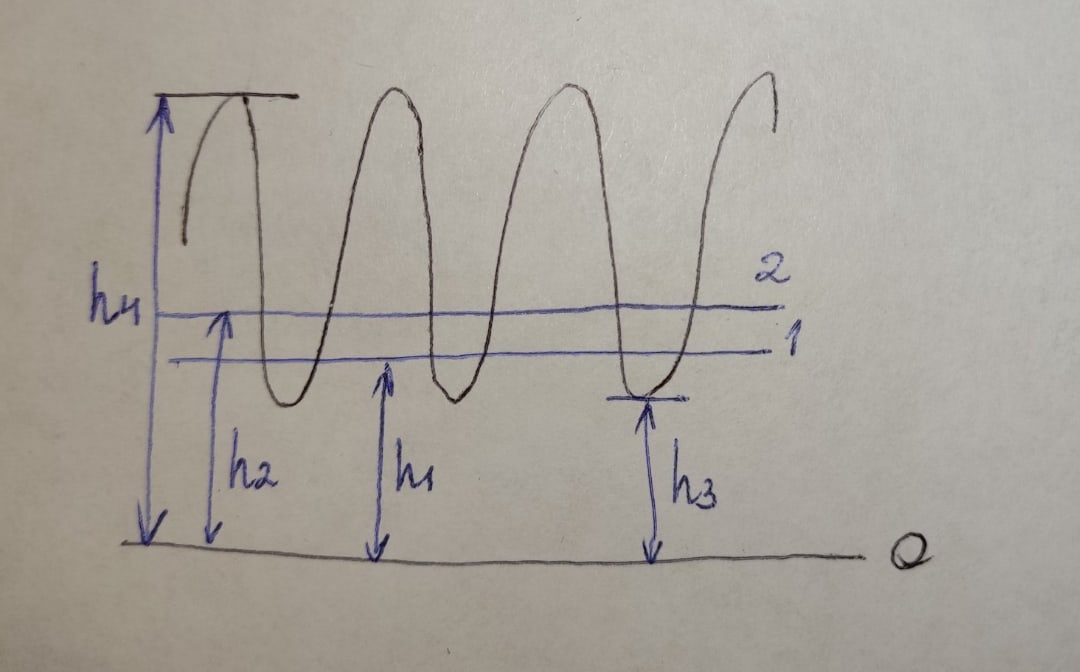 2
h4
1
h2
h1
h3
O